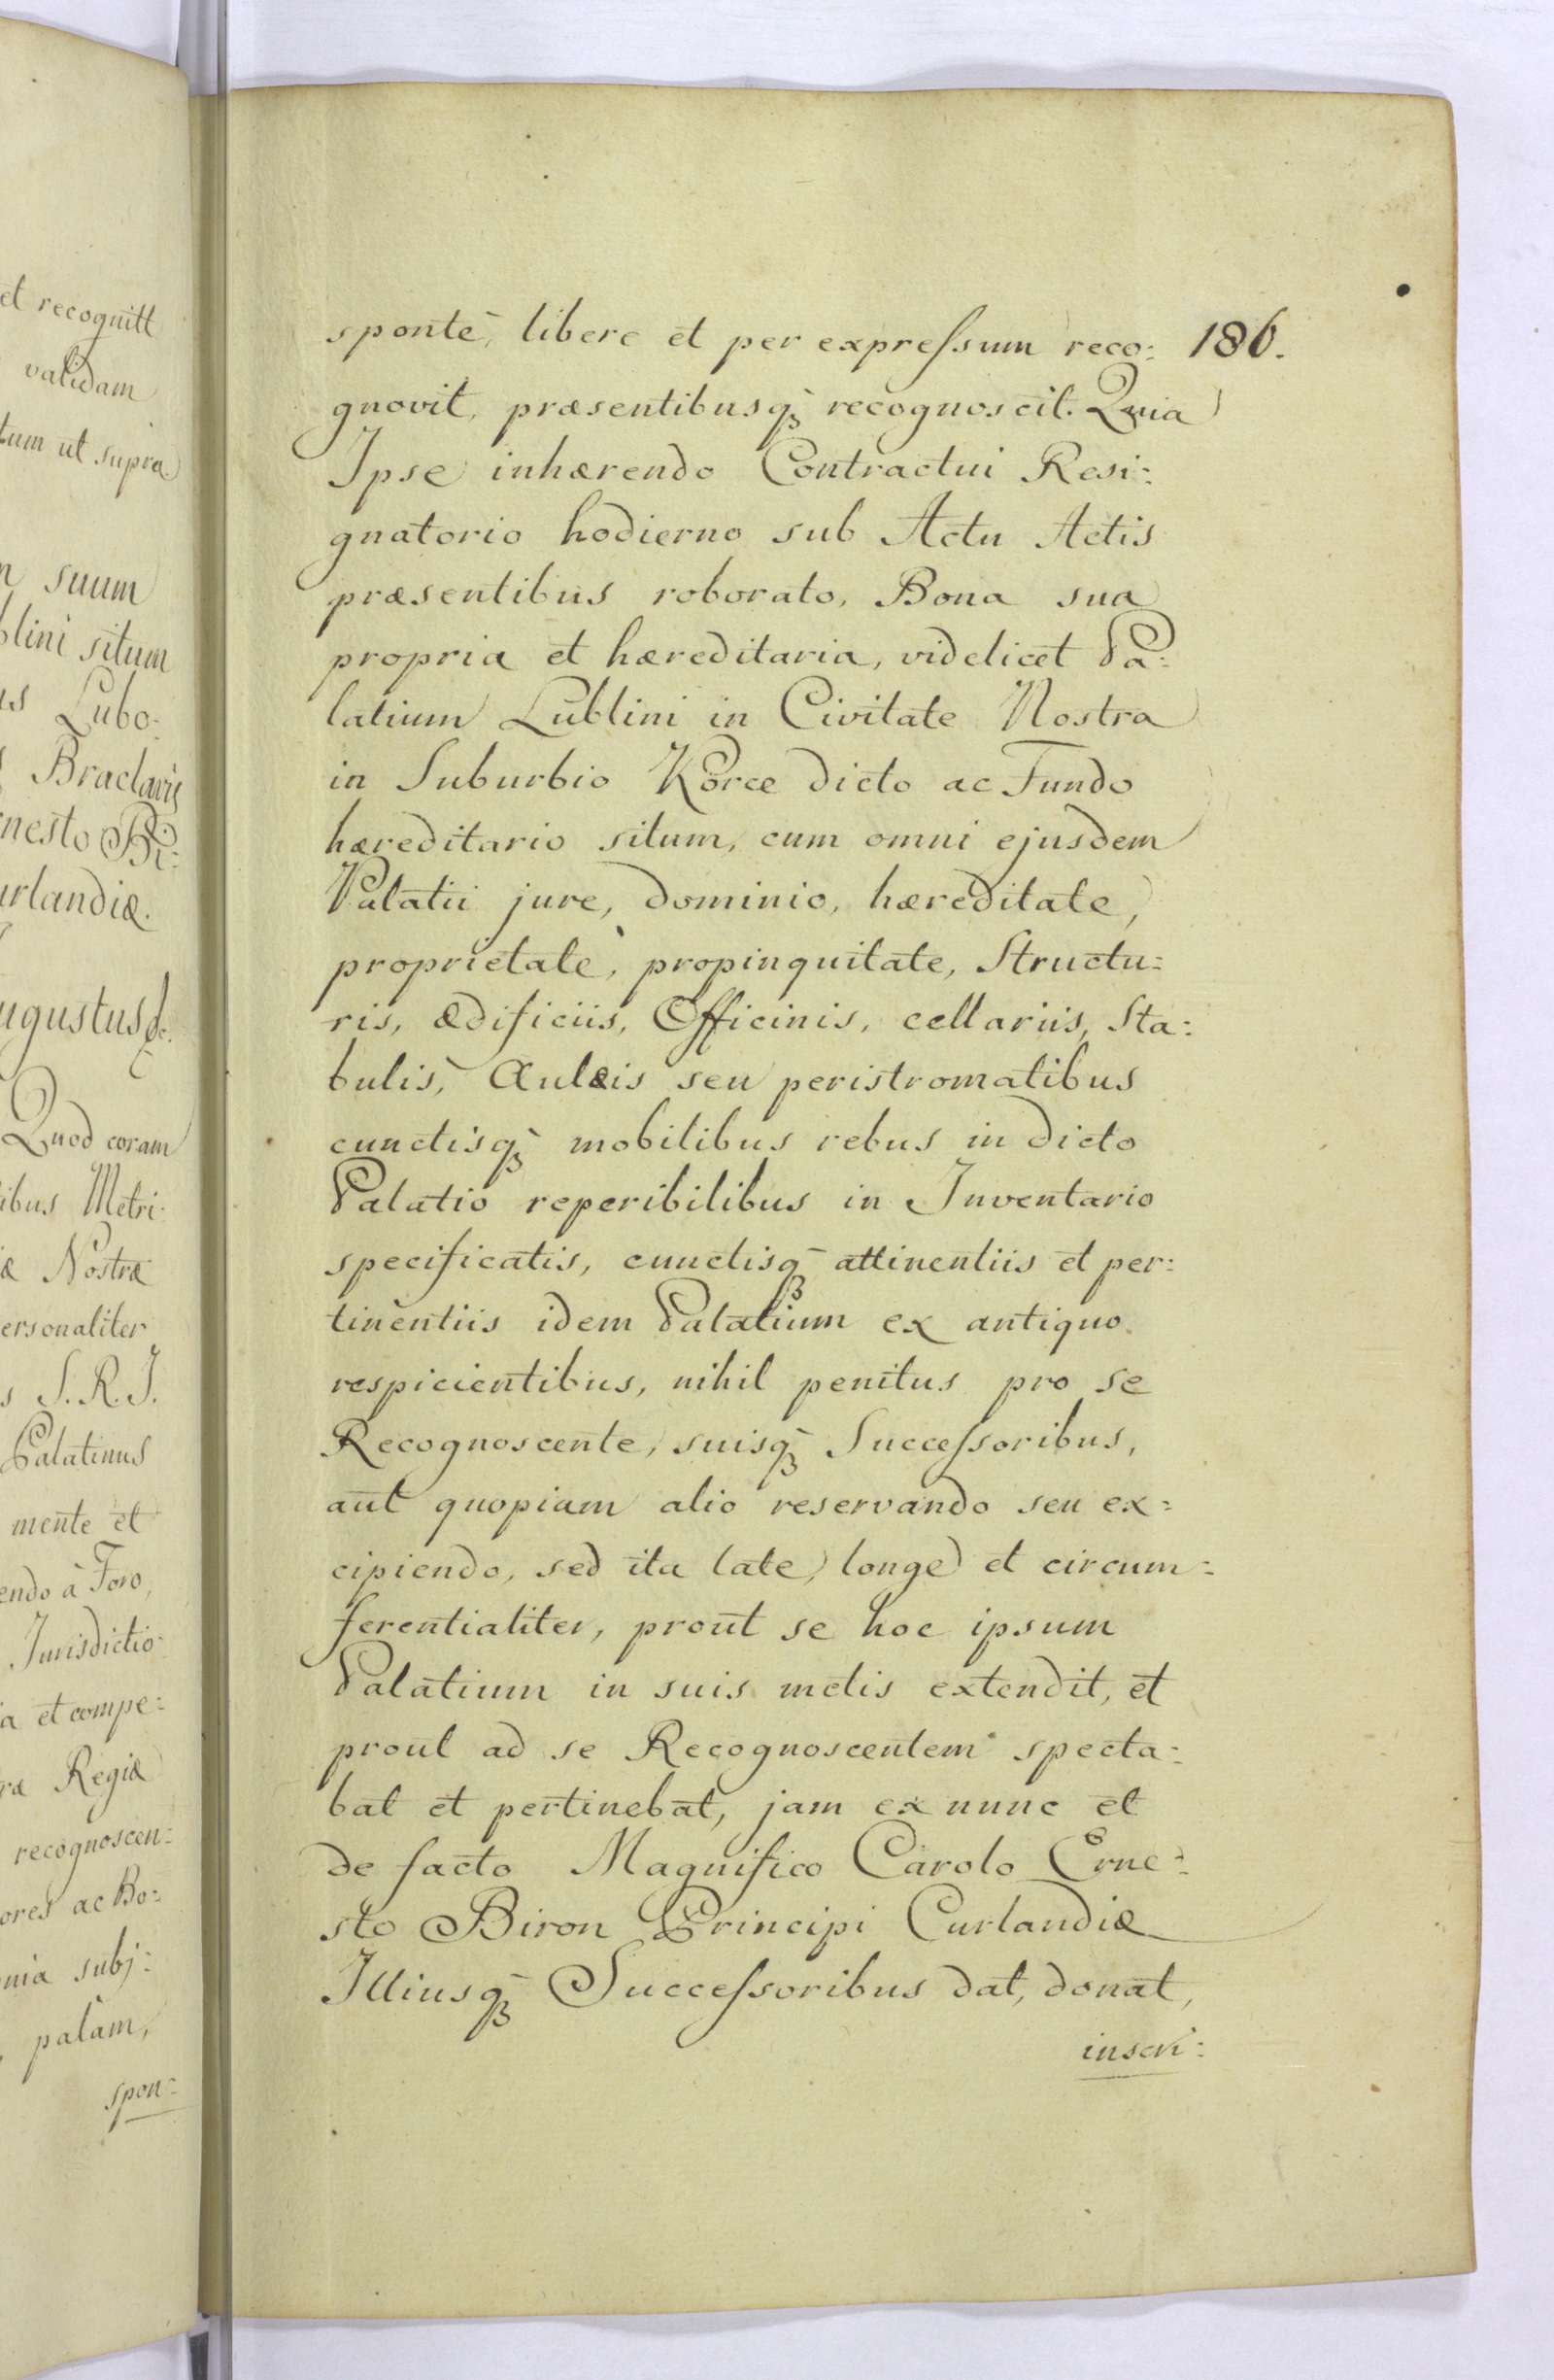 et recognitt
validam
tum ut supra
suum
blini situm
Lubo-
Braclavię
nesto Bi:
urlandiæ.
ugustus
Quod coram
ibus Metri-
Nostræ
ersonaliter
S. R. I.
Palatinus
mente et
endo à Foro,
Jurisdictio-
a et compe:
Regiæ
recognoscen:
ores ac Bo:
nia subj:
palam,
spon:
186.
sponte, libere et per expreſsum reco:
gnovit, præsentibusq̃ recognoscit. Quia
Ipse inhærendo Contractui Resi:
gnatorio hodierno sub Actu Actis
præsentibus roborato, Bona sua
propria et hæreditaria, videlicet Pa:
latium Lublini in Civitate Nostra
in Suburbio Korce dicto ac Fundo
hæreditario situm, cum omni ejusdem
Palatii jure, dominio, hæreditate,
proprietate, propinquitate, Structu:
ris, ædificiis, Officinis, cellariis, Sta:
bulis, Aulæis seu peristromatibus
cunctisq̃ mobilibus rebus in dicto
Palatio reperibilibus in Inventario
specificatis, cunctisq̃ attinentiis et per:
tinentiis idem Palatium ex antiquo
respicientibus, nihil penitus pro se
Recognoscente, suisq̃ Succeſsoribus,
aut quopiam alio reservando seu ex:
cipiendo, sed ita late, longe et circum:
ferentialiter, prout se hoc ipsum
Palatium in suis metis extendit, et
prout ad se Recognoscentem specta:
bat et pertinebat, jam ex nunc et
de facto Magnifico Carolo Erne:
sto Biron Principi Curlandiæ
Illiusq̃ Succeſsoribus dat, donat,
inscri: